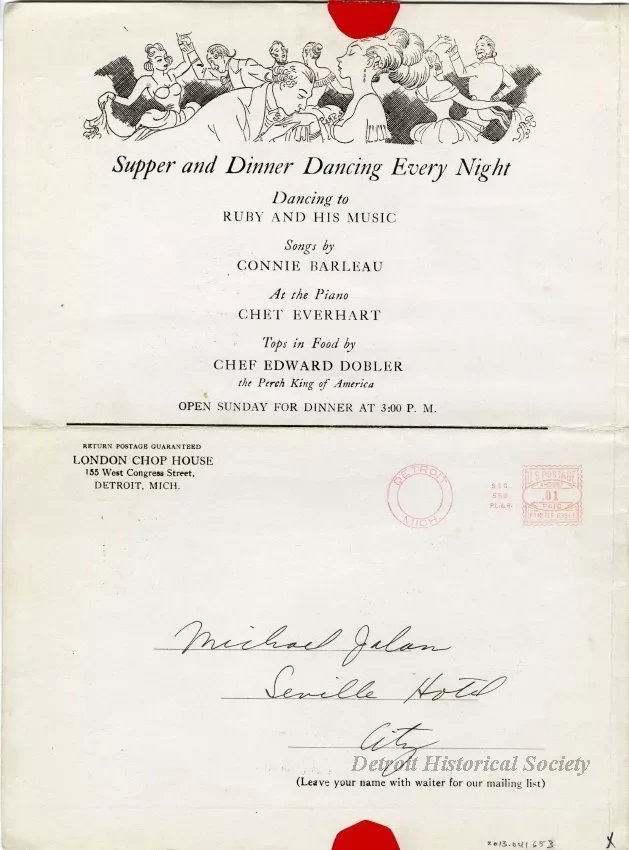 Supper and Dinner Dancing Every Night
Dancing to
RUBY AND HIS MUSIC
Songs by
CONNIE BARLEAU
At the Piano
CHET EVERHART
Tops in Food by
CHEF EDWARD DOBLER
the Perch King of America
OPEN SUNDAY FOR DINNER AT 3:00 P. M.
RETURN POSTAGE GUARANTEED
LONDON CHOP HOUSE
155 West Congress Street,
DETROIT, MICH.
DETROIT
MICH.
SEC.
PL.&R.
U.S. POSTAGE
.01
PAID
Michael Jalan
Seville Hotel
City
Detroit Historical Society
(Leave your name with waiter for our mailing list)
2013.041.653
X